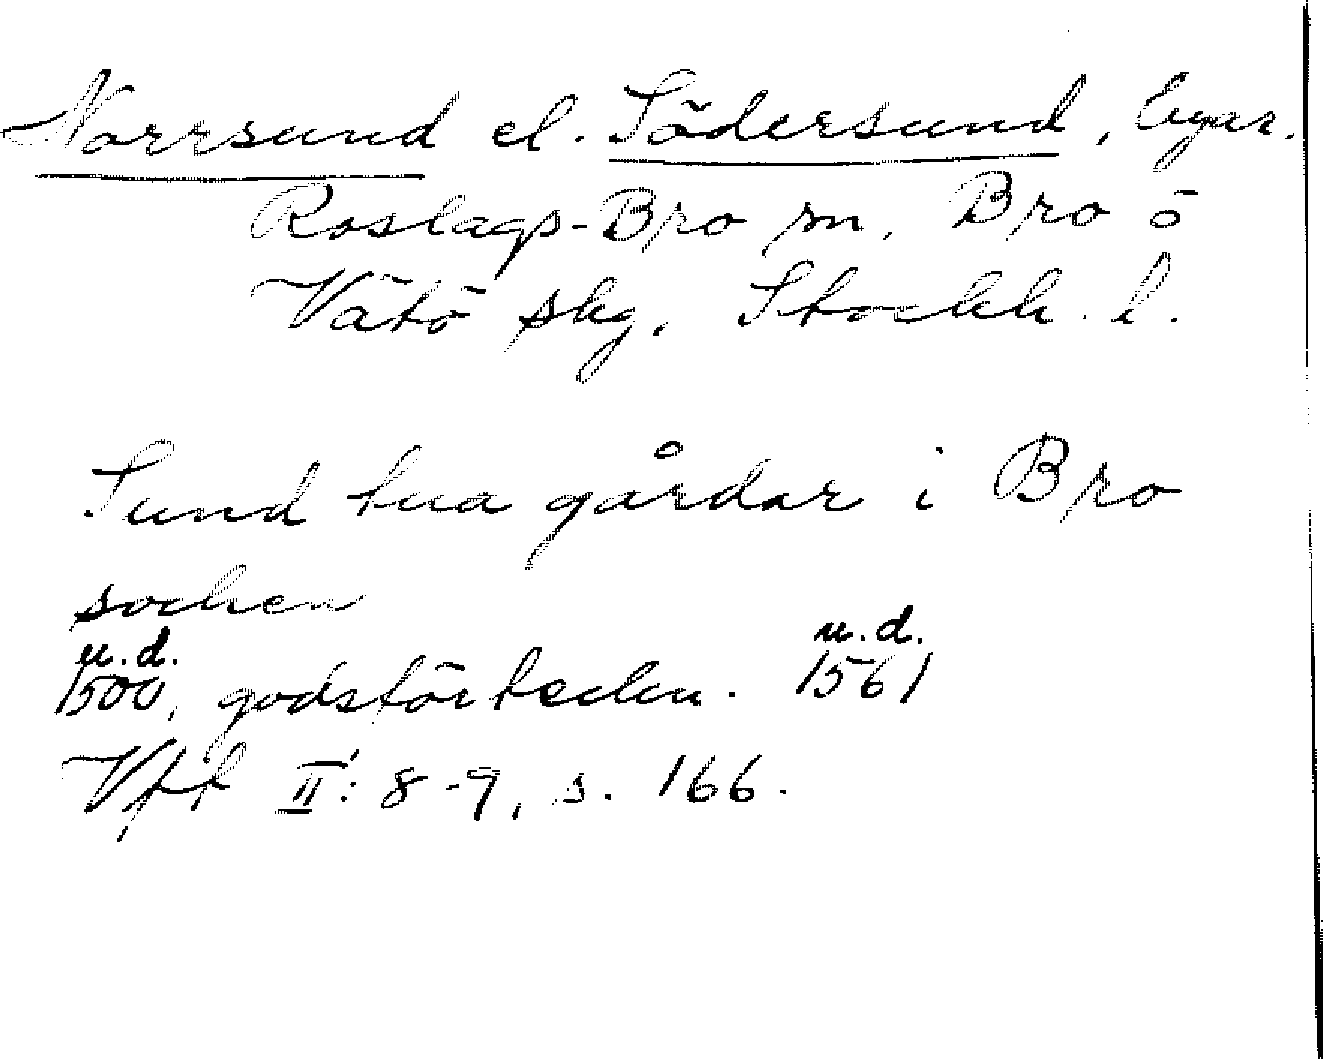 Norrsund el. Södersund, byar.
Roslags-Bro sn, Bro o
Vätö skg, Stockh. l.
Sund tua gårdar i Bro
sochen
u.d. u.d.
1500, godsförteckn. 1561
Vff II: 8-9, s. 166.